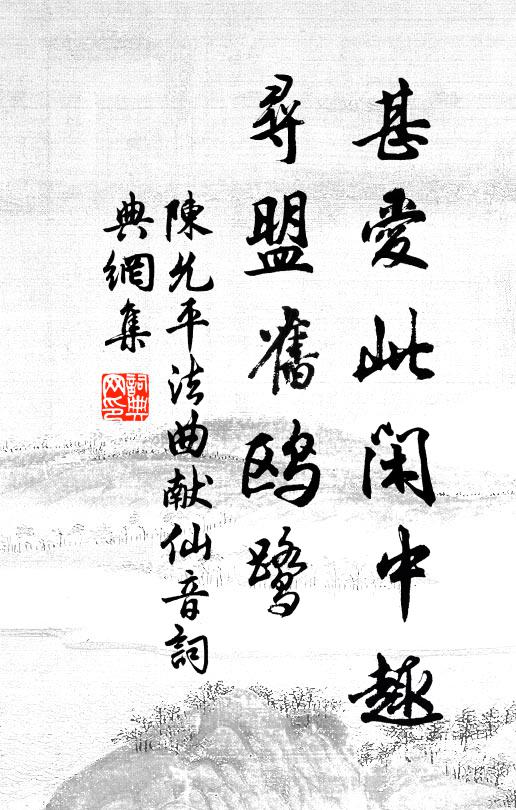 甚愛此閑中趣
尋盟舊鷗鷺
陳允平法曲献仙音詞
典網集
詞典网印